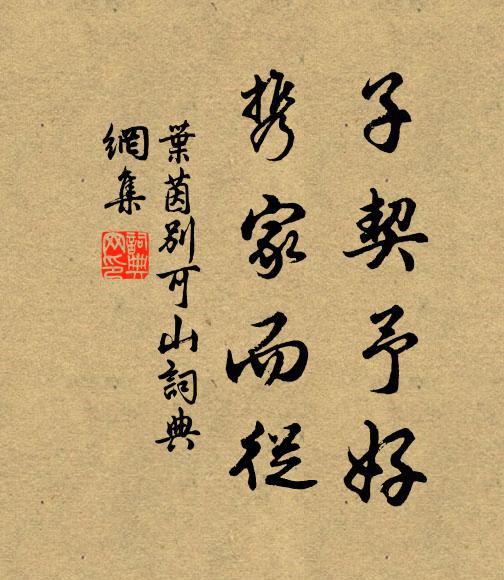 子契予好
携家而從
葉茵別可山詞典
網集
詞典網印